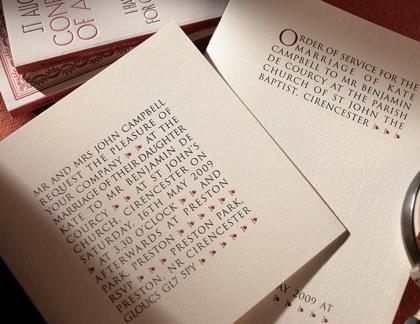 MR AND MRS JOHN CAMPBELL
REQUEST THE PLEASURE OF
YOUR COMPANY AT THE
MARRIAGE OF THEIR DAUGHTER
KATE TO MR BENJAMIN DE
COURCY AT ST JOHN'S
CHURCH, CIRENCESTER ON
SATURDAY, 16TH MAY 2009
AT 3.30 O'CLOCK AND
AFTERWARDS AT PRESTON
PARK, PRESTON
RSVP PRESTON PARK,
PRESTON, NR CIRENCESTER
GLOUCS GL7 5PY
ORDER OF SERVICE FOR THE
MARRIAGE OF KATE
CAMPBELL TO MR BENJAMIN
DE COURCY AT THE PARISH
CHURCH OF ST JOHN THE
BAPTIST, CIRENCESTER
AY 2009 AT
CON
OF A
FOR